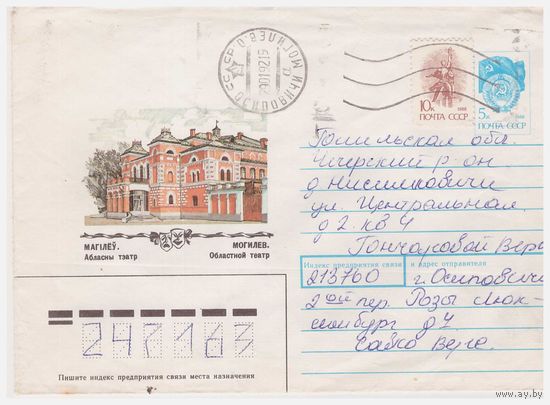 СССР ОСИПОВИЧИ МОГИЛЕВ.О.
10к 1988
ПОЧТА СССР
5к 1988
ПОЧТА СССР
Гомельская обл.
Чечерский р-он
д. Нисимковичи
ул. Центральная
д 2. кв 4
Гончаровой Вере
МАГІЛЁЎ.
Абласны тэатр
МОГИЛЕВ.
Областной театр
Индекс предприятия связи и адрес отправителя
213760 г. Осиповичи
2ой пер. Розы Люк-
сембург д 4
247163
Пишите индекс предприятия связи места назначения
www.ay.by